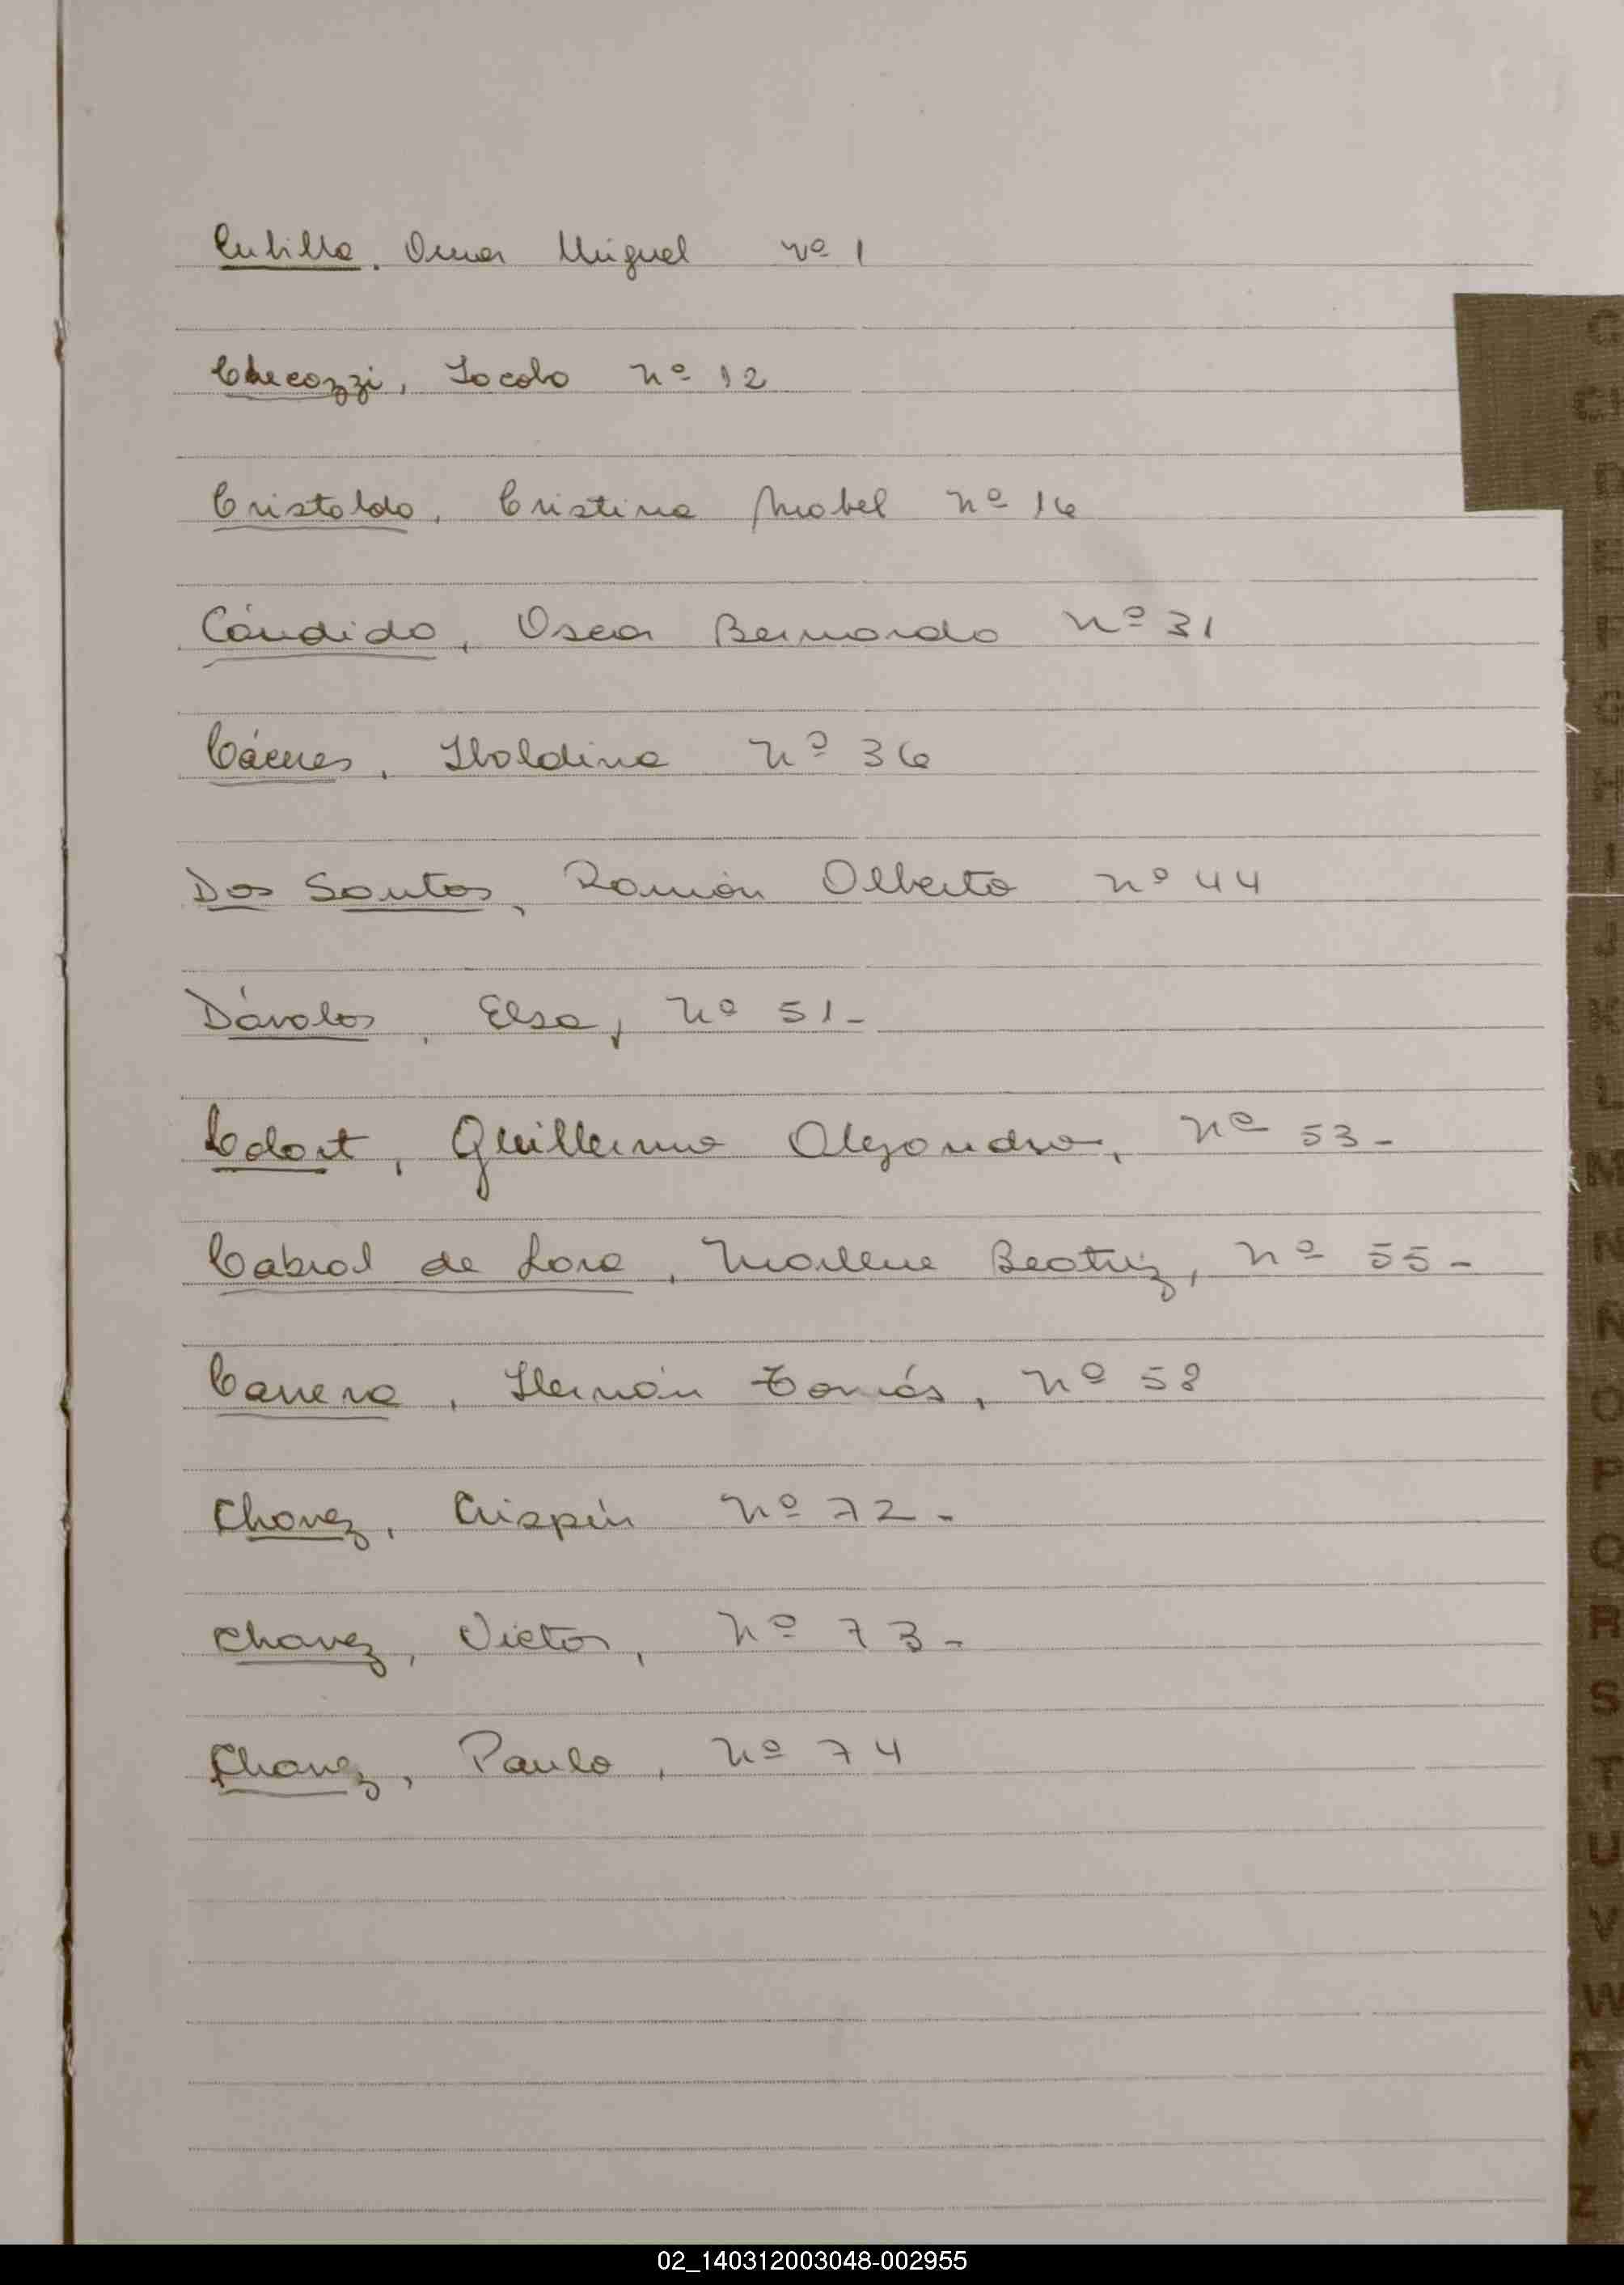 Cubilla, Omar Miguel nº 1
Checozzi, Jacobo nº 12
Cristaldo, Cristina Mabel nº 16
Cándido, Oscar Bernardo nº 31
Cáceres, Ibaldina nº 36
Dos Santos, Ramón Alberto nº 44
Dávalos, Elsa, nº 51-
Guillermo Alejandro, nº 53-
Cabral de Lora, Marlene Beatriz, nº 55-
Carrera, Hernán Tomás, nº 58
Chavez, Crispín nº 72-
Chavez, Victor, nº 73-
Chavez, Paulo, nº 74
C
CH
D
E
F
G
H
I
J
K
L
M
N
Ñ
O
P
Q
R
S
T
U
V
W
X
Y
Z
02_140312003048-002955